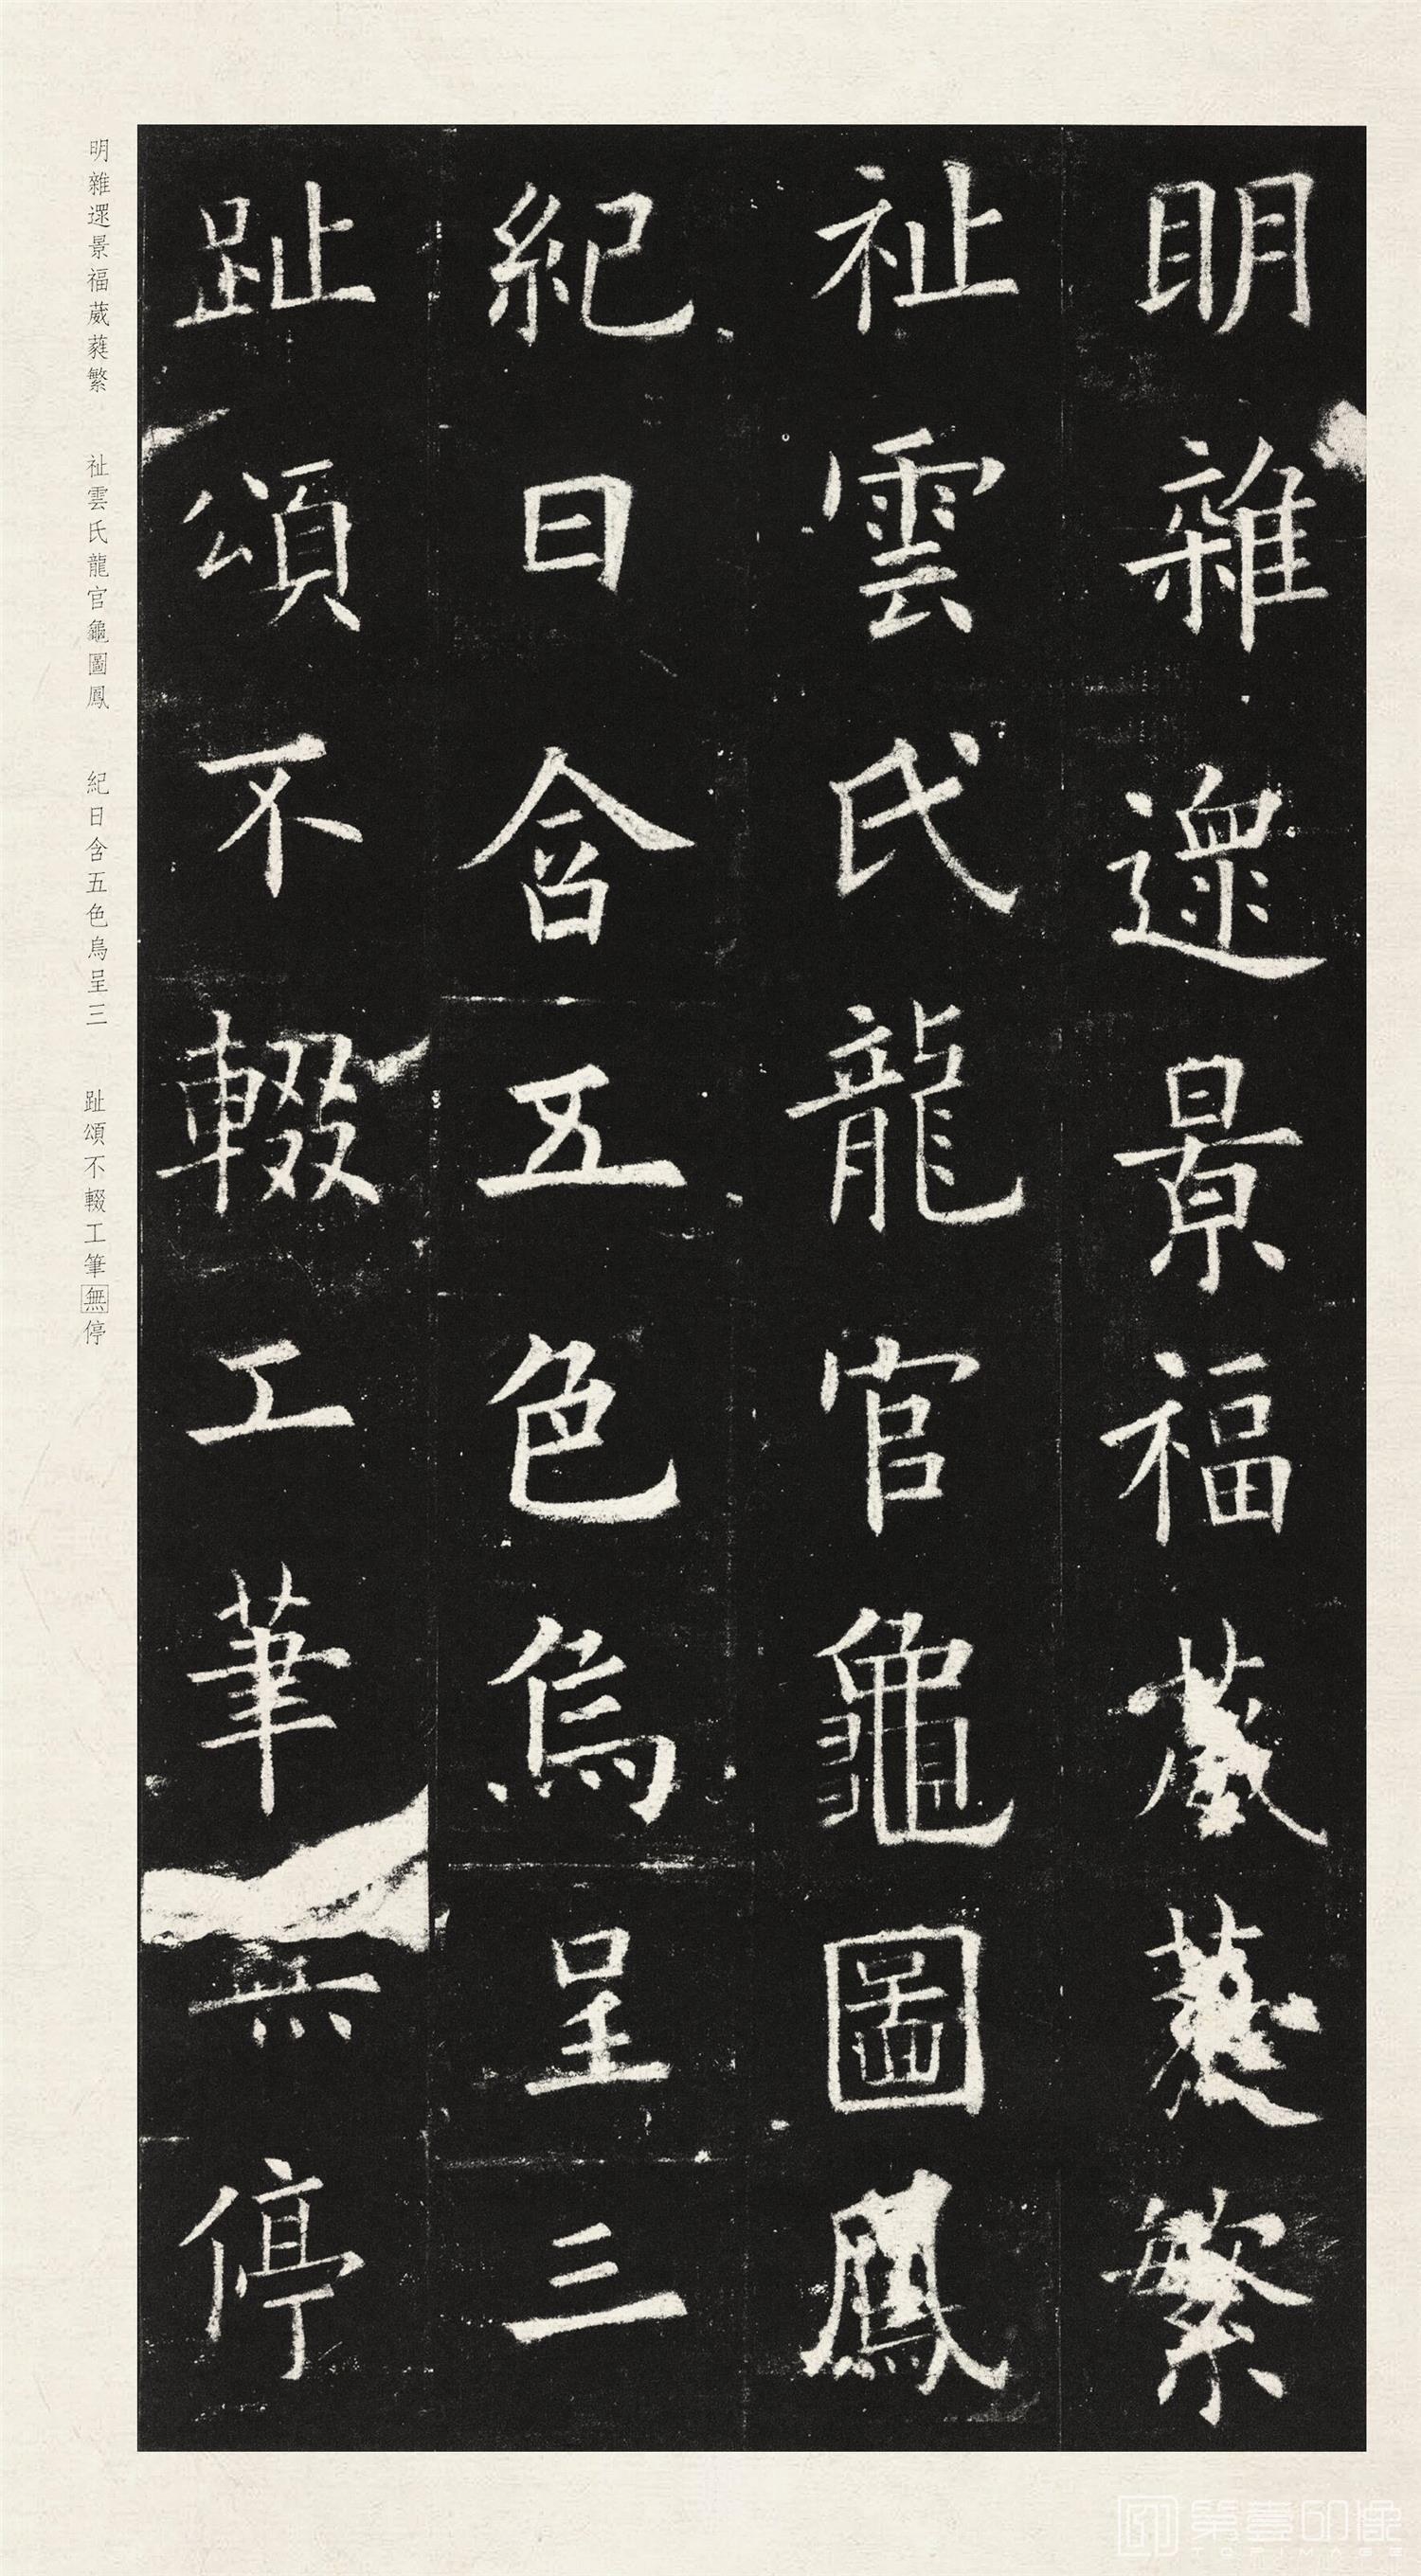 明雜遝景福葳蕤繁
祉雲氏龍官龜圖鳳
紀日含五色烏呈三
趾頌不輟工筆無停
明雜遝景福葳蕤繁 祉雲氏龍官龜圖鳳 紀日含五色烏呈三 趾頌不輟工筆無停
第壹印像
TOPIMAGE